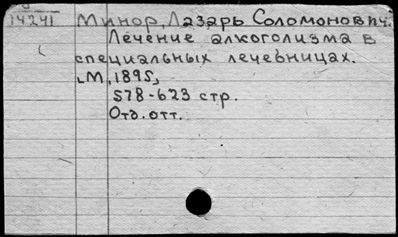 14241
Минор, Лазарь Соломонович.
Лечение алкоголизма в
специальных лечебницах.
М, 1895,
578-623 стр.
Отд. отт.